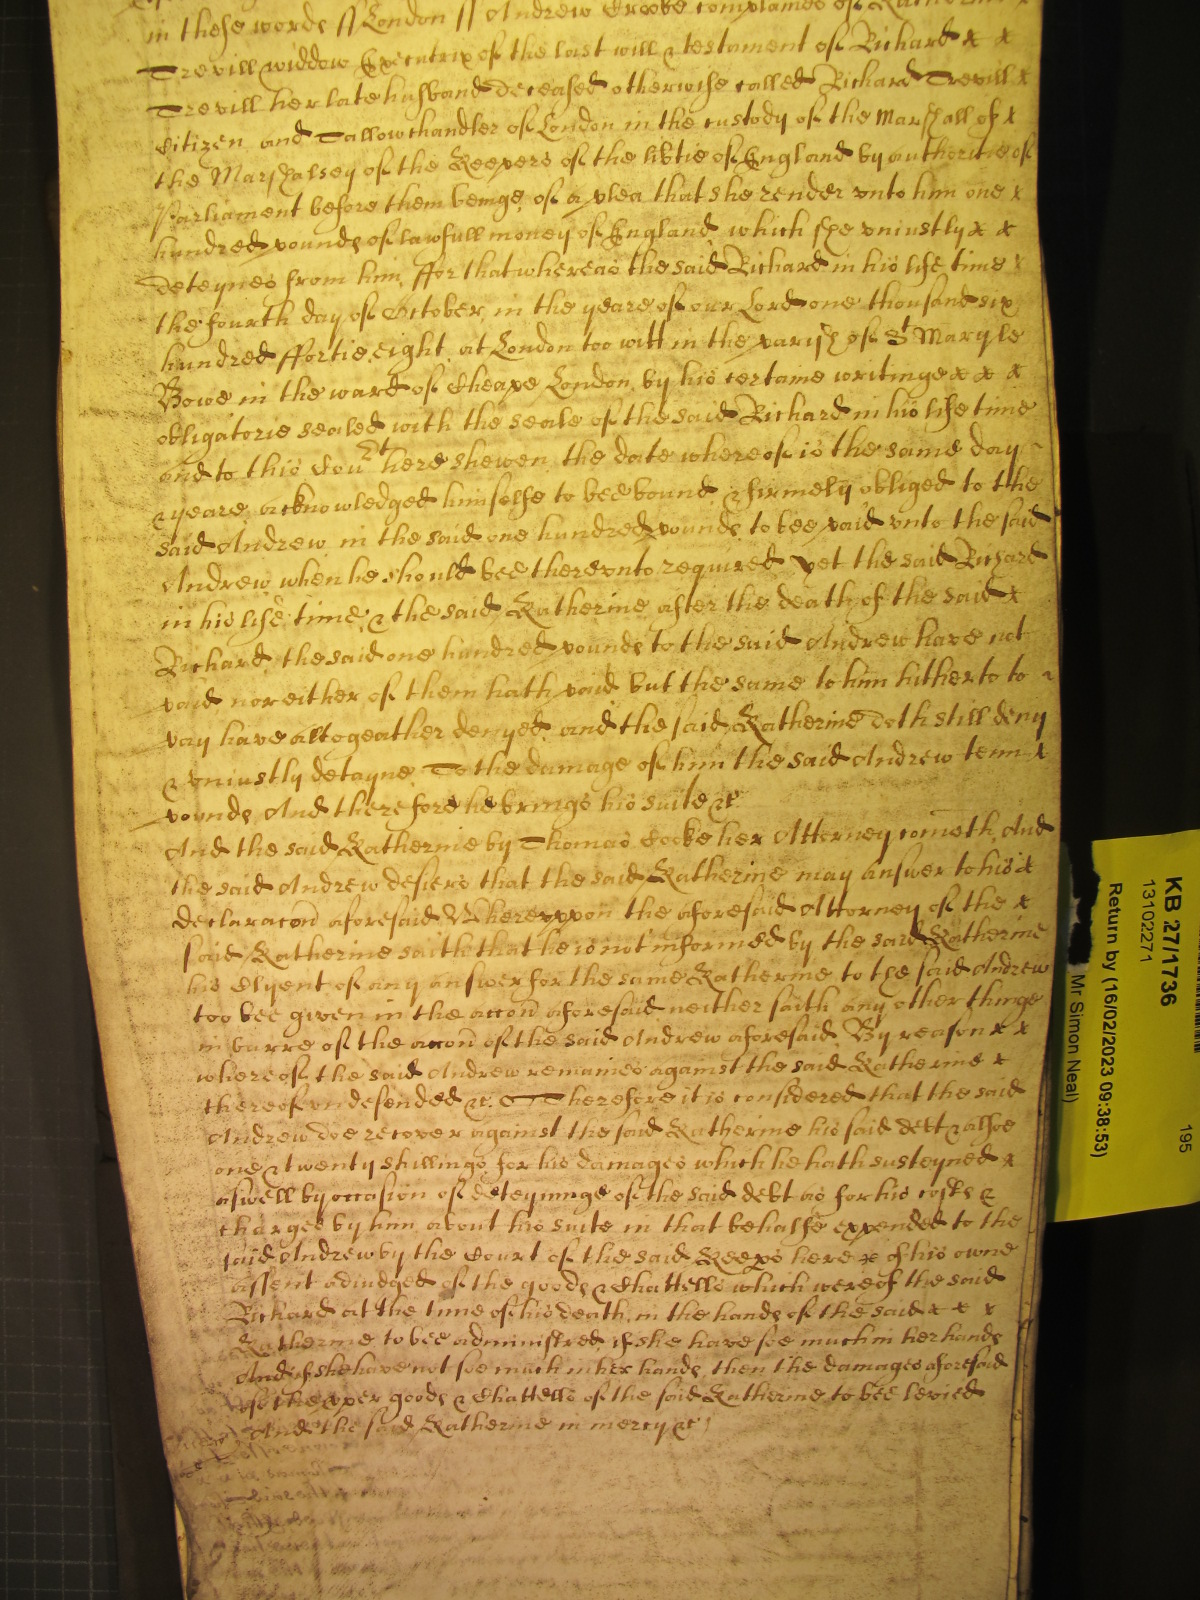 in these words ss London ss Andrew Crooke complaines of Katherine x
Trevill widdow Executrix of the last will & testament of Richard x x
Trevill her late husband deceased otherwise called Richard Trevill x
Citizen and Tallowchandler of London in the custody of the Marshall of x
the Marshalsey of the Keepers of the lib'tie of England by authoritie of
Parliament before them beinge of a plea that she render vnto him one x
hundred pounds of lawfull money of England which she vniustly x x
deteynes from him ffor that whereas the said Richard in his life time x
the fourth day of October in the yeare of our Lord one thousand six
hundred ffortie eight at London too witt in the parish of St Mary le
Bowe in the ward of Cheape London by his certaine writinge x x x
obligatorie sealed with the seale of the said Richard in his life time
and to this Court here shewen the date whereof is the same day
& yeare acknowledged himselfe to bee bound & firmely obliged to the
said Andrew in the said one hundred pounds to bee paid vnto the said
Andrew when he should bee therevnto required yet the said Richard
in his life time & the said Katherine after the death of the said x
Richard the said one hundred pounds to the said Andrew have not
paid nor either of them hath paid but the same to him hitherto to
pay have altogeather denyed and the said Katherine doth still deny
& vniustly detayne To the damage of him the said Andrew tenn x
pounds And therefore he brings his suite &c
And the said Katherine by Thomas Cocke her Attorney cometh And
the said Andrew desiers that the said Katherine may answer to his x
declaracon aforesaid Wherevppon the aforesaid Attorney of the x
said Katherine saith that he is not informed by the said Katherine
his Clyent of any answer for the same Katherine to the said Andrew
too bee given in the accon aforesaid neither saith any other thinge
in barre of the accon of the said Andrew aforesaid By reason x x
whereof the said Andrew remaines against the said Katherine x
thereof vndefended &c. Therefore it is considered that the said
Andrew doe recover against the said Katherine his said debt & alsoe
one & twenty shillings for his damages which he hath susteyned x
aswell by occasion of deteyninge of the said debt as for his costs &
charges by him about his suite in that behalfe expended to the
said Andrew by the Court of the said Keeps here &c of his owne
assent adiudged of the goods & Chattells which were of the said
Richard at the time of his death in the hands of the said x x x
Katherine to bee administred if she have soe much in her hands
And if she have not soe much in her hands then the damages aforesaid
of the proper goods & Chattells of the said Katherine to bee levied
And the said Katherine in mercy &c
KB 27/1736
13102271
Return by (16/02/2023 09:38:53)
Mr Simon Neal)
195